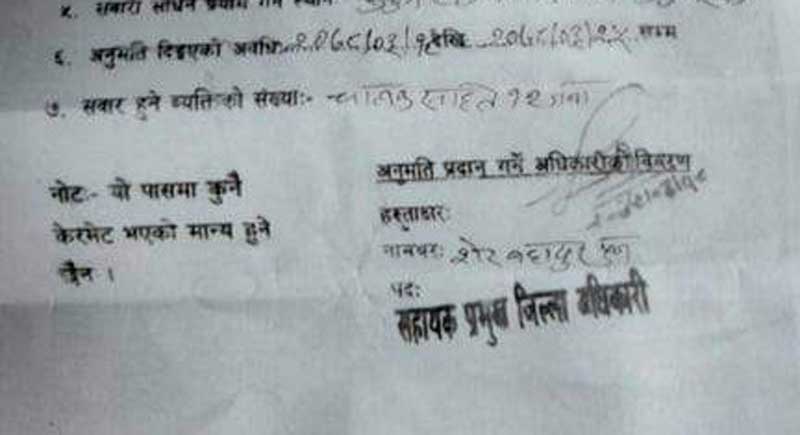 ५. सवारी साधन प्रयोग गर्ने स्थान
६. अनुमति दिइएको अवधिः- २०७८/०३/१८ देखि २०७८/०३/२५ सम्म
७. सवार हुने व्यक्तिको संख्याः- चालक सहित १२ जना
अनुमति प्रदान गर्ने अधिकारीको विवरण
नोटः- यो पासमा कुनै
केरमेट भएको मान्य हुने
छैन ।
हस्ताक्षरः
नामथरः शेर बहादुर
पदः
सहायक प्रमुख जिल्ला अधिकारी